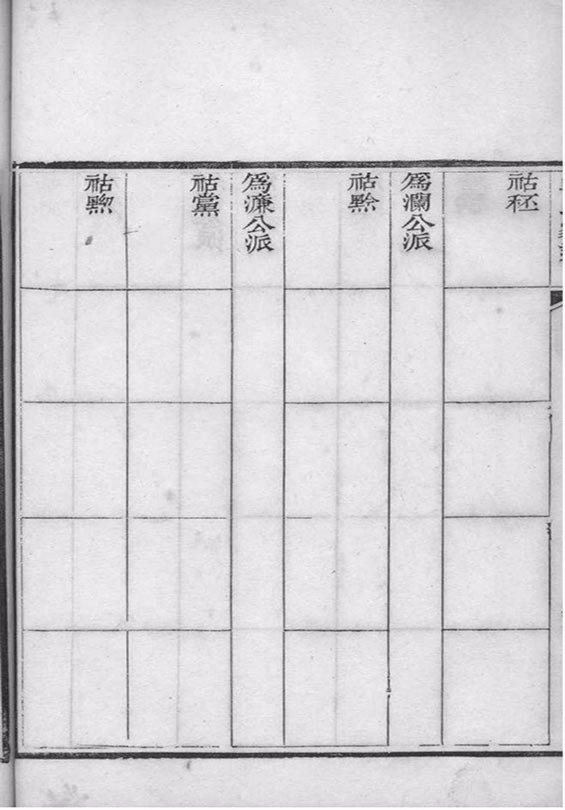 祜秠
為瀾公派
祜黔
為濂公派
祜黨
祜㸃